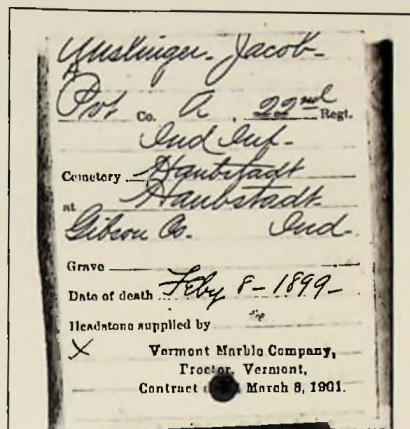 Yuslinger. Jacob-
Pvt Co. A, 22nd Regt.
Ind Inf-
Cemetery Haubstadt
at Haubstadt
Gibson Co. Ind-
Grave
Date of death Feby 8-1899-
Headstone supplied by
X Vermont Marble Company,
Proctor, Vermont,
Contract March 8, 1901.